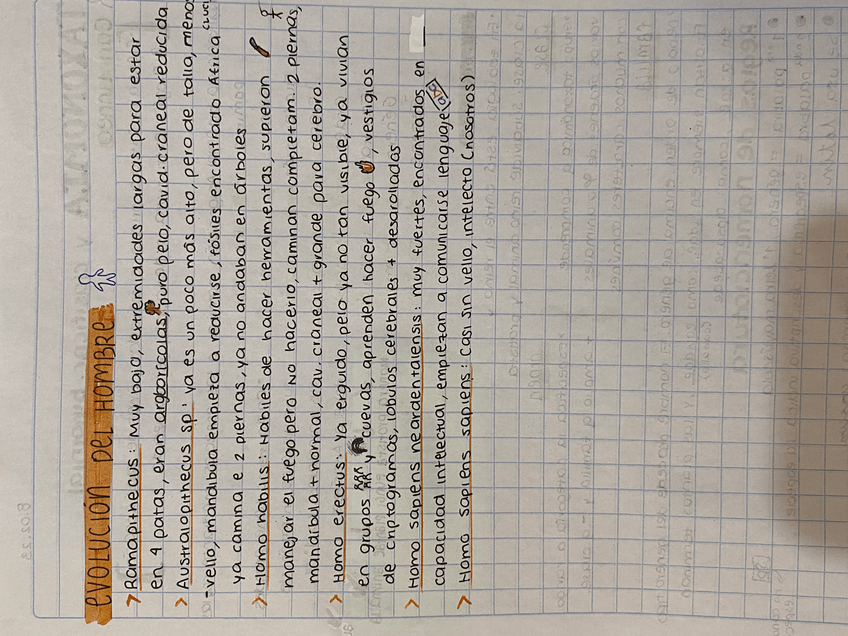 EVOLUCIÓN DEL HOMBRE
> Ramapithecus: Muy bajo, extremidades largas para estar
en 4 patas, eran argoricolas, puro pelo, cavid. craneal reducida
> Australopithecus sp: ya es un poco más alto, pero de talla, menos
-vello, mandibula empieza a reducirse, fósiles encontrado África
ya camina e 2 piernas, ya no andaban en árboles
> Homo habilis: Habiles de hacer herramientas, supieron
manejar el fuego pero NO hacerlo, caminan completam. 2 piernas,
mandibula + normal, cav. craneal + grande para cerebro.
> Homo erectus: Ya erguido, pelo ya no tan visible, ya vivian
en grupos y cuevas, aprenden hacer fuego, vestigios
de criptogramas, lobulos cerebrales + desarollados
> Homo sapiens neardentalensis: muy fuertes, encontrados en __
capacidad intelectual, empiezan a comunicarse lenguaje
> Homo sapiens sapiens: Casi sin vello, intelecto (nosotros)